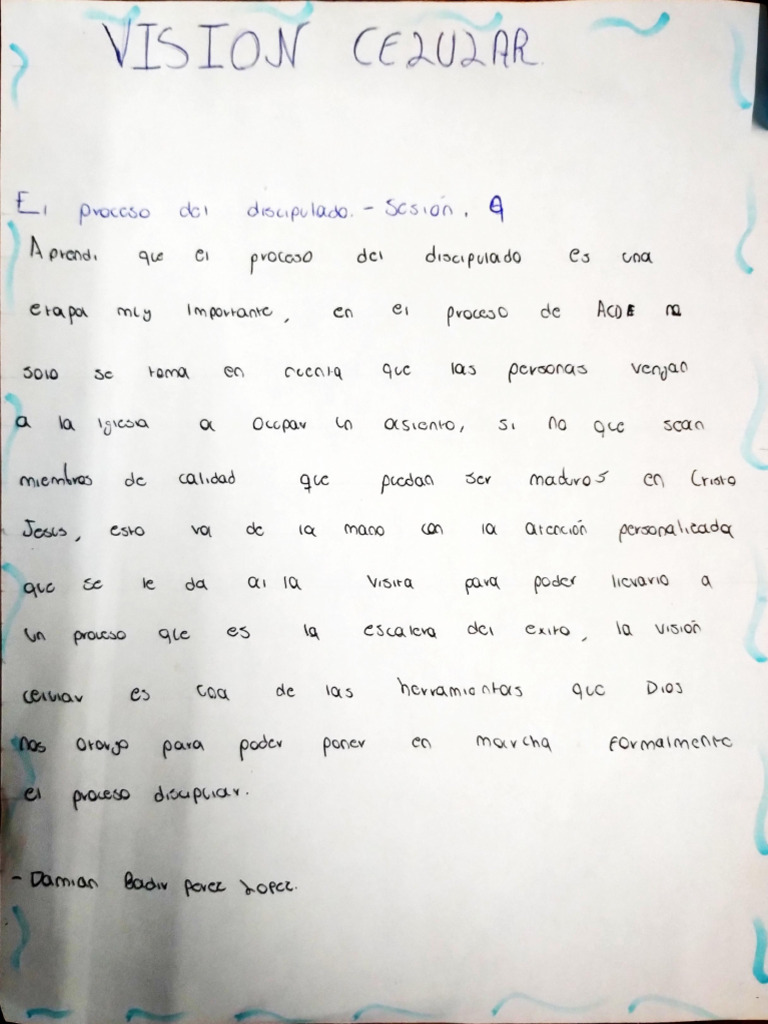 VISION CELULAR
El proceso del discipulado. - Sesión. 9
Aprendi que el proceso del discipulado es una
etapa muy importante, en el proceso de ACDE no
solo se toma en cuenta que las personas vengan
a la Iglesia a ocupar un asiento, si no que sean
miembros de calidad que puedan ser maduros en Cristo
Jesus, esto va de la mano con la atención personalizada
que se le da al la visita para poder llevarlo a
un proceso que es la escalera del exito, la visión
celular es una de las herramientas que Dios
nos otorgo para poder poner en marcha formalmente
el proceso discipular.
- Damian Badir perez Lopez.